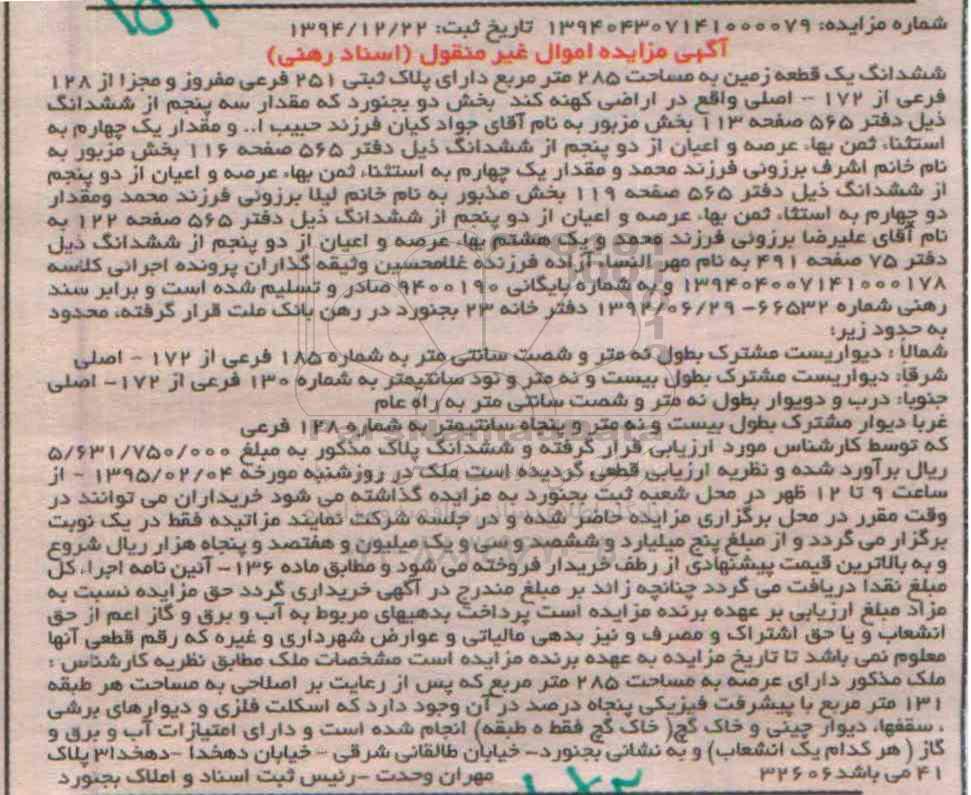 شماره مزایده: ۱۳۹۴۰۴۳۰۷۱۴۱۰۰۰۰۷۹ تاریخ ثبت: ۱۳۹۴/۱۲/۲۲
آگهی مزایده اموال غیر منقول (اسناد رهنی)
ششدانگ یک قطعه زمین به مساحت ۲۸۵ متر مربع دارای پلاک ثبتی ۲۵۱ فرعی مفروز و مجزا از ۱۲۸
فرعی از ۱۷۲ - اصلی واقع در اراضی کهنه کند بخش دو بجنورد که مقدار سه پنجم از ششدانگ
ذیل دفتر ۵۶۵ صفحه ۱۱۳ بخش مزبور به نام آقای جواد کیان فرزند حبیب ا.. و مقدار یک چهارم به
استثناء ثمن بهاء عرصه و اعیان از دو پنجم از ششدانگ ذیل دفتر ۵۶۵ صفحه ۱۱۶ بخش مزبور به
نام خانم اشرف برزونی فرزند محمد و مقدار یک چهارم به استثناء ثمن بهاء عرصه و اعیان از دو پنجم
از ششدانگ ذیل دفتر ۵۶۵ صفحه ۱۱۹ بخش مذبور به نام خانم لیلا برزونی فرزند محمد ومقدار
دو چهارم به استثاء ثمن بهاء عرصه و اعیان از دو پنجم از ششدانگ ذیل دفتر ۵۶۵ صفحه ۱۲۲ به
نام آقای علیرضا برزونی فرزند محمد و یک هشتم بهاء عرصه و اعیان از دو پنجم از ششدانگ ذیل
دفتر ۷۵ صفحه ۴۹۱ به نام مهر النساء آزاده فرزنده غلامحسین وثیقه گذاران پرونده اجرائی کلاسه
۱۳۹۴۰۴۰۰۷۱۴۱۰۰۰۱۷۸ و به شماره بایگانی ۹۴۰۰۱۹۰ صادر و تسلیم شده است و برابر سند
رهنی شماره ۶۶۵۳۲- ۱۳۹۲/۰۶/۲۹ دفتر خانه ۲۳ بجنورد در رهن بانک ملت قرار گرفته، محدود
به حدود زیر:
شمالاً : دیواریست مشترک بطول نه متر و شصت سانتی متر به شماره ۱۸۵ فرعی از ۱۷۲ - اصلی
شرقاً: دیواریست مشترک بطول بیست و نه متر و نود سانتیمتر به شماره ۱۳۰ فرعی از ۱۷۲- اصلی
جنوبا: درب و دویوار بطول نه متر و شصت سانتی متر به راه عام
غربا دیوار مشترک بطول بیست و نه متر و پنجاه سانتیمتر به شماره ۱۲۸ فرعی
که توسط کارشناس مورد ارزیابی قرار گرفته و ششدانگ پلاک مذکور به مبلغ ۵/۶۳۱/۷۵۰/۰۰۰
ریال برآورد شده و نظریه ارزیابی قطعی گردیده است ملک در روزشنبه مورخه ۱۳۹۵/۰۲/۰۴ - از
ساعت ۹ تا ۱۲ ظهر در محل شعبه ثبت بجنورد به مزایده گذاشته می شود خریداران می توانند در
وقت مقرر در محل برگزاری مزایده حاضر شده و در جلسه شرکت نمایند مزاتیده فقط در یک نوبت
برگزار می گردد و از مبلغ پنج میلیارد و ششصد و سی و یک میلیون و هفتصد و پنجاه هزار ریال شروع
و به بالاترین قیمت پیشنهادی از رطف خریدار فروخته می شود و مطابق ماده ۱۳۶- آئین نامه اجراء کل
مبلغ نقدا دریافت می گردد چنانچه زائد بر مبلغ مندرج در آگهی خریداری گردد حق مزایده نسبت به
مزاد مبلغ ارزیابی بر عهده برنده مزایده است پرداخت بدهیهای مربوط به آب و برق و گاز اعم از حق
انشعاب و یا حق اشتراک و مصرف و نیز بدهی مالیاتی و عوارض شهرداری و غیره که رقم قطعی آنها
معلوم نمی باشد تا تاریخ مزایده به عهده برنده مزایده است مشخصات ملک مطابق نظریه کارشناس :
ملک مذکور دارای عرصه به مساحت ۲۸۵ متر مربع که پس از رعایت بر اصلاحی به مساحت هر طبقه
۱۳۱ متر مربع با پیشرفت فیزیکی پنجاه درصد در آن وجود دارد که اسکلت فلزی و دیوارهای برشی
، سقفها، دیوار چینی و خاک گچ( خاک گچ فقط ۵ طبقه) انجام شده است و دارای امتیازات آب و برق و
گاز ( هر کدام یک انشعاب) و به نشانی بجنورد- خیابان طالقانی شرقی - خیابان دهخدا -دهخدا۳ پلاک
۴۱ می باشد ۳۲۶۰۶ مهران وحدت -رئیس ثبت اسناد و املاک بجنورد